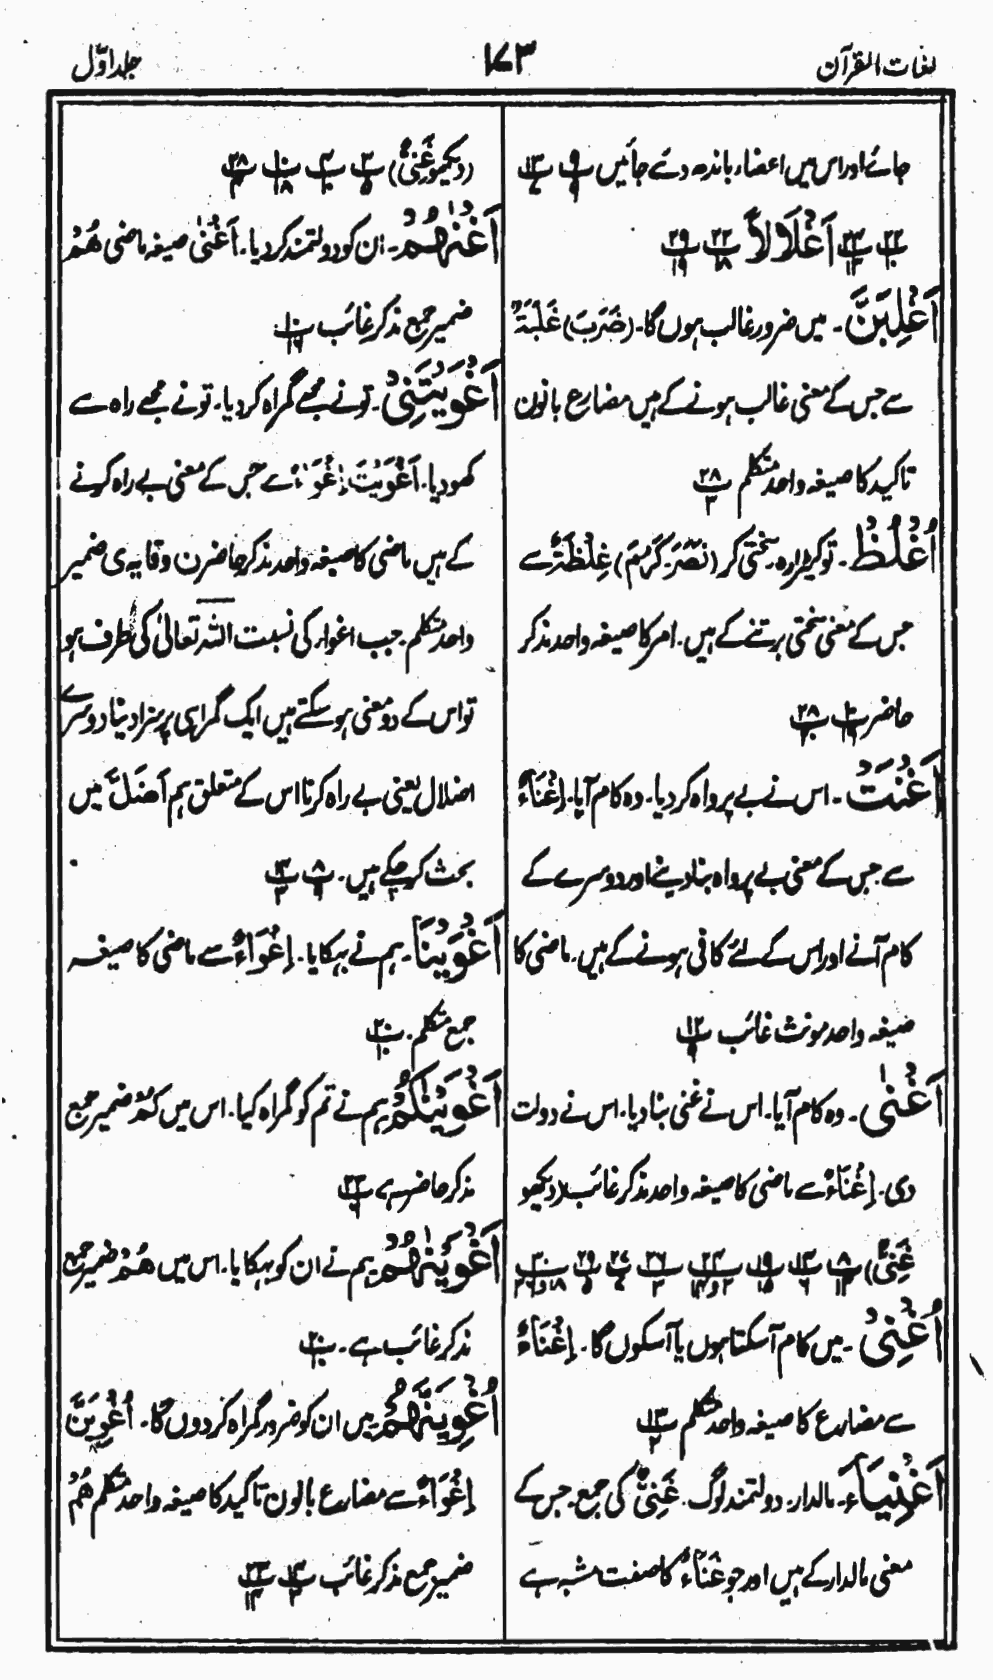 لغات القرآن
۱۷۳
جلد اوّل
جائے اور اس میں اعضاء باندھ دئے جائیں
أَغْلَالاً
أَغْلِبَنَّ۔ میں ضرور غالب ہوں گا۔ (ضَرَبَ) غَلَبَةٌ
سے جس کے معنی غالب ہونے کے ہیں مضارع بانون
تاکید کا صیغہ واحد متکلم ۲۸
اُغْلُظْ۔ تو کڑا رہ۔ سختی کر (نَصَرَ۔ كَرُمَ) غِلْظَةٌ سے
جس کے معنی سختی برتنے کے ہیں۔ امر کا صیغہ واحد مذکر
حاضر
أَغْنَتْ۔ اس نے بے پرواہ کر دیا۔ وہ کام آیا۔ إِغْنَاءٌ
سے جس کے معنی بے پرواہ بنا دینے اور دوسرے کے
کام آنے اور اس کے لئے کافی ہونے کے ہیں۔ ماضی کا
صیغہ واحد مونث غائب ۱۲
أَغْنٰى۔ وہ کام آیا۔ اس نے غنی بنا دیا۔ اس نے دولت
دی۔ إِغْنَاءٌ سے ماضی کا صیغہ واحد مذکر غائب (دیکھو
غَنِيٌّ)
أُغْنِيْ۔ میں کام آسکتا ہوں یا آسکوں گا۔ إِغْنَاءٌ
سے مضارع کا صیغہ واحد متکلم ۱۳
أَغْنِيَاءَ۔ مالدار۔ دولتمند لوگ۔ غَنِيٌّ کی جمع۔ جس کے
معنی مالدار کے ہیں اور جو غَنَاءٌ کا صفت مشبہ ہے
(دیکھو غَنِيٌّ)
أَغْنٰهُمْ۔ ان کو دولتمند کر دیا۔ أَغْنٰى صیغہ ماضی هُمْ
ضمیر جمع مذکر غائب
أَغْوَيْتَنِيْ۔ تو نے مجھے گمراہ کر دیا۔ تو نے مجھے راہ سے
کھو دیا۔ أَغْوَيْتَ إِغْوَاءٌ سے جس کے معنی بے راہ کرنے
کے ہیں ماضی کا صیغہ واحد مذکر حاضر ن وقایہ ی ضمیر
واحد متکلم۔ جب اغواء کی نسبت اللہ تعالیٰ کی طرف ہو
تو اس کے دو معنی ہو سکتے ہیں ایک گمراہی پر سزا دینا دوسرے
اضلال یعنی بے راہ کرنا اس کے متعلق ہم أَضَلَّ میں
بحث کر چکے ہیں۔
أَغْوَيْنَا۔ ہم نے بہکایا۔ إِغْوَاءٌ سے ماضی کا صیغہ
جمع متکلم۔
أَغْوَيْنٰكُمْ ہم نے تم کو گمراہ کیا۔ اس میں كُمْ ضمیر جمع
مذکر حاضر ہے ۲۳
أَغْوَيْنٰهُمْ ہم نے ان کو بہکایا۔ اس میں هُمْ ضمیر جمع
مذکر غائب ہے۔
أُغْوِيَنَّهُمْ میں ان کو ضرور گمراہ کر دوں گا۔ أُغْوِيَنَّ
إِغْوَاءٌ سے مضارع بانون تاکید کا صیغہ واحد متکلم هُمْ
ضمیر جمع مذکر غائب